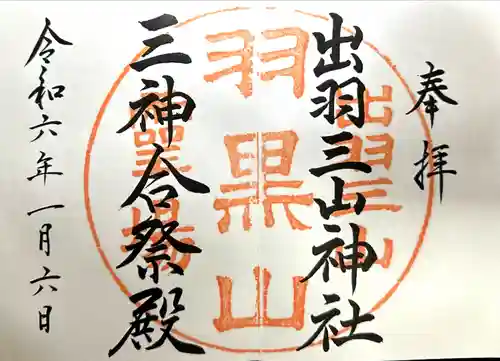 奉拝
出羽三山神社
三神合祭殿
令和六年一月六日
羽黒山